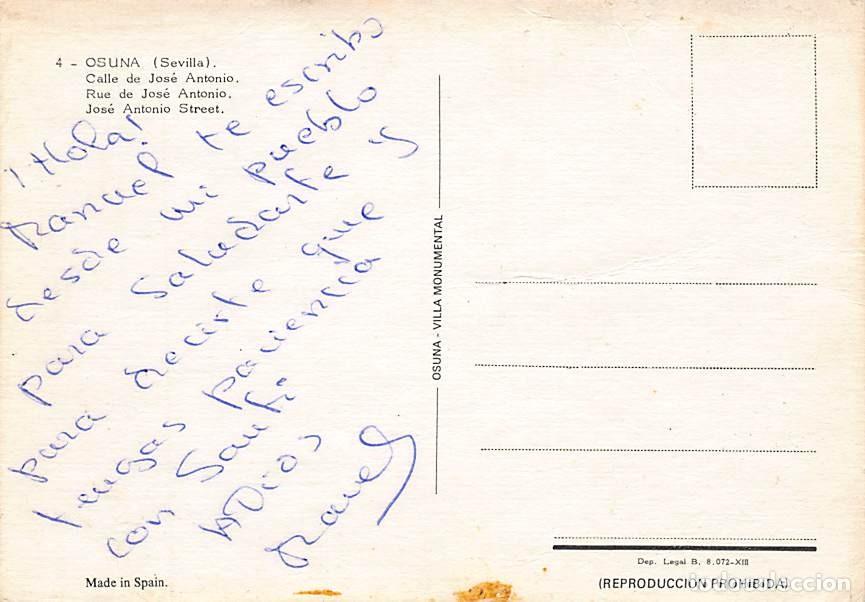 4 - OSUNA (Sevilla).
Calle de José Antonio.
Rue de José Antonio.
José Antonio Street.
¡Hola!
Manuel te escribo
desde mi pueblo
para Saludarte y
para decirte que
tengas paciencia
con Santi
ADios
Manuel
OSUNA - VILLA MONUMENTAL
Made in Spain.
Dep. Legal B. 8.072-XIII
(REPRODUCCION PROHIBIDA)
todocoleccion